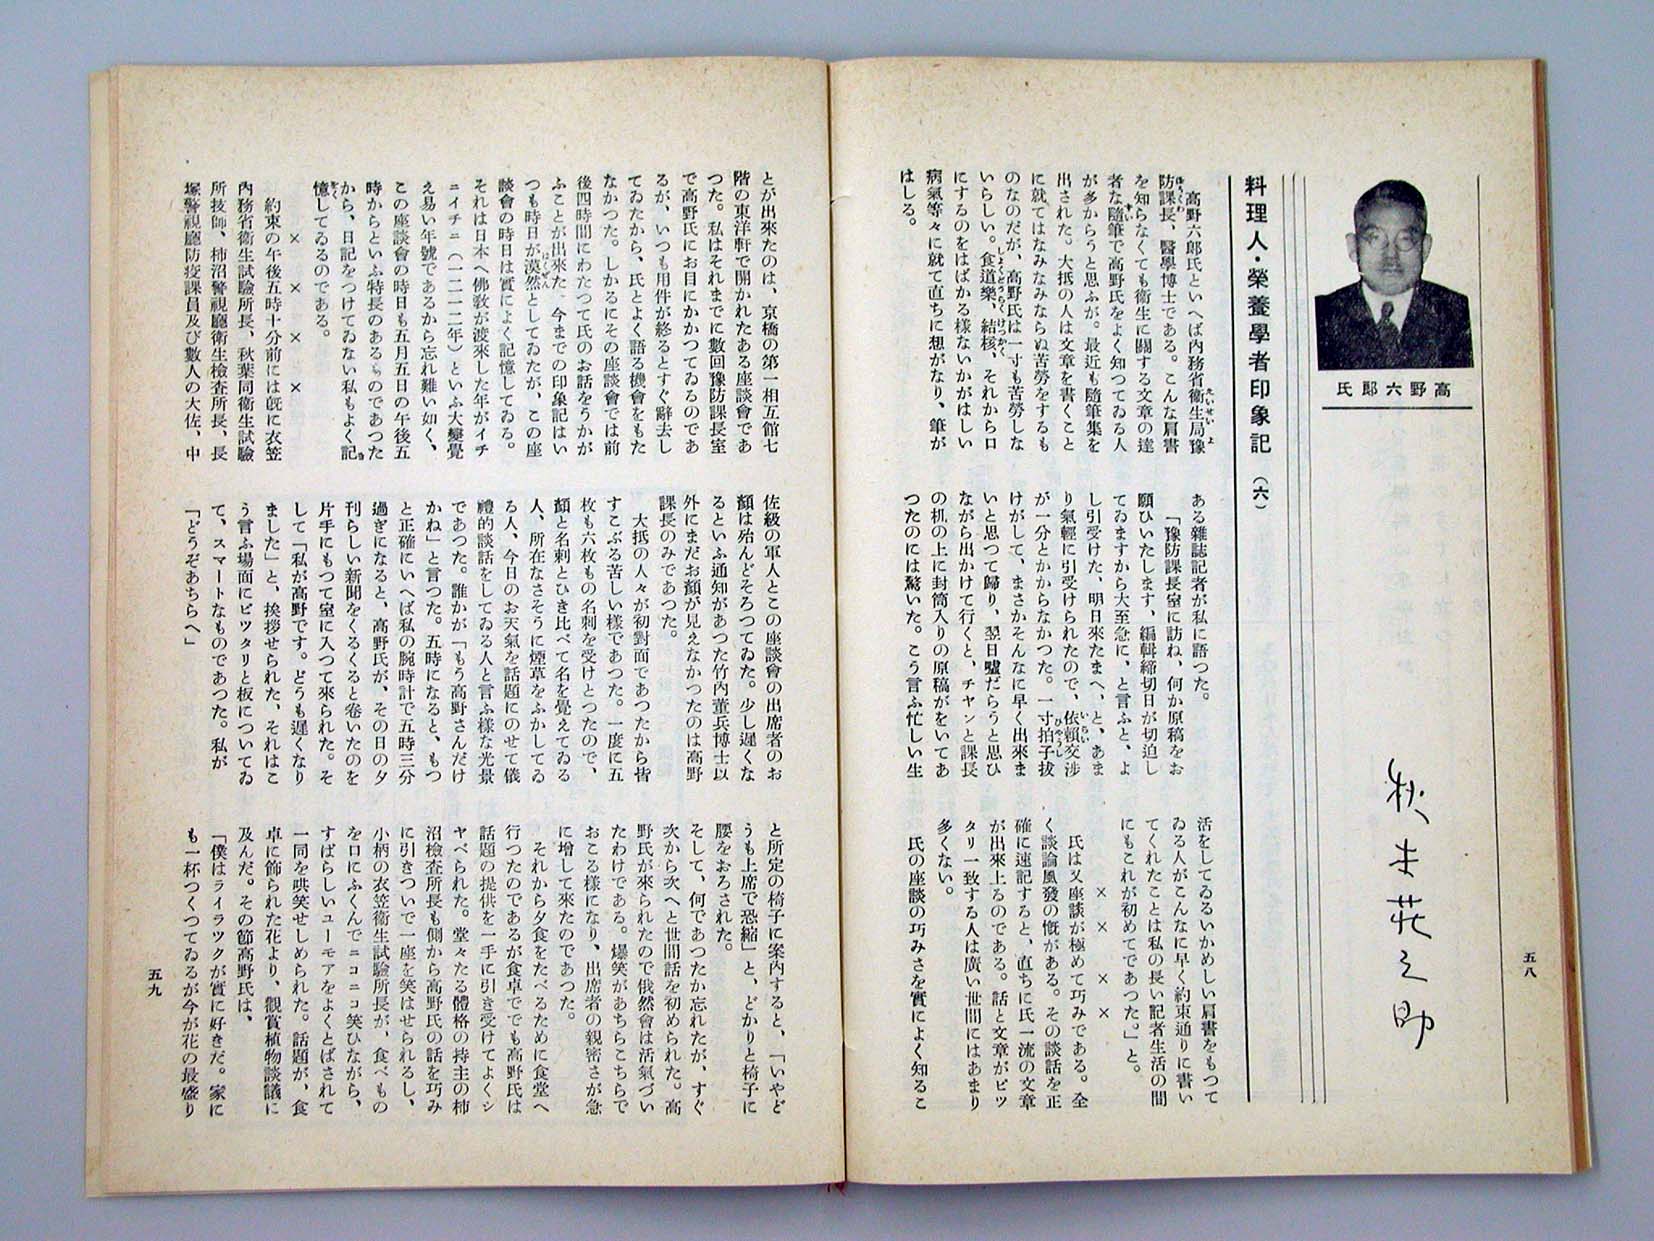 高野六郎氏
秋本莊之助
五八
料理人・榮養學者印象記（六）
高野六郎氏といへば内務省衞生局豫
防課長、醫學博士である。こんな肩書
を知らなくても衞生に關する文章の達
者な隨筆で高野氏をよく知つてゐる人
が多からうと思ふが。最近も隨筆集を
出された。大抵の人は文章を書くこと
に就てはなみなみならぬ苦勞をするも
のなのだが、高野氏は一寸も苦勞しな
いらしい。食道樂、結核、それから口
にするのをはばかる樣ないかがはしい
病氣等々に就て直ちに想がなり、筆が
はしる。
ある雜誌記者が私に語つた。
「豫防課長室に訪ね、何か原稿をお
願ひいたします、編輯締切日が切迫し
てゐますから大至急に、と言ふと、よ
し引受けた、明日來たまへ、と、あま
り氣輕に引受けられたので、依賴交渉
が一分とかからなかつた。一寸拍子拔
けがして、まさかそんなに早く出來ま
いと思つて歸り、翌日嘘だらうと思ひ
ながら出かけて行くと、チヤンと課長
の机の上に封筒入りの原稿がをいてあ
つたのには驚いた。こう言ふ忙しい生
活をしてゐるいかめしい肩書をもつて
ゐる人がこんなに早く約束通りに書い
てくれたことは私の長い記者生活の間
にもこれが初めてであつた。」と。
×　×　×　×
氏は又座談が極めて巧みである。全
く談論風發の慨がある。その談話を正
確に速記すると、直ちに氏一流の文章
が出來上るのである。話と文章がピツ
タリ一致する人は廣い世間にはあまり
多くない。
氏の座談の巧みさを實によく知るこ
とが出來たのは、京橋の第一相互館七
階の東洋軒で開かれたある座談會であ
つた。私はそれまでに數回豫防課長室
で高野氏にお目にかかつてゐるのであ
るが、いつも用件が終るとすぐ辭去し
てゐたから、氏とよく語る機會をもた
なかつた。しかるにその座談會では前
後四時間にわたつて氏のお話をうかが
ふことが出來た。今までの印象記はい
つも時日が漠然としてゐたが、この座
談會の時日は實によく記憶してゐる。
それは日本へ佛敎が渡來した年がイチ
ニイチニ（一二一二年）といふ大變覺
え易い年號であるから忘れ難い如く、
この座談會の時日も五月五日の午後五
時からといふ特長のあるものであつた
から、日記をつけてゐない私もよく記
憶してゐるのである。
×　×　×　×
約束の午後五時十分前には旣に衣笠
内務省衞生試驗所長、秋葉同衞生試驗
所技師、柿沼警視廳衞生檢査所長、長
塚警視廳防疫課員及び數人の大佐、中
佐級の軍人とこの座談會の出席者のお
顏は殆んどそろつてゐた。少し遲くな
るといふ通知があつた竹內薰兵博士以
外にまだお顏が見えなかつたのは高野
課長のみであつた。
大抵の人々が初對面であつたから皆
すこぶる苦しい樣であつた。一度に五
枚も六枚もの名刺を受けとつたので、
顏と名刺とひき比べて名を覺えてゐる
人、所在なさそうに煙草をふかしてゐ
る人、今日のお天氣を話題にのせて儀
禮的談話をしてゐる人と言ふ樣な光景
であつた。誰かが「もう高野さんだけ
かね」と言つた。五時になると、もつ
と正確にいへば私の腕時計で五時三分
過ぎになると、高野氏が、その日の夕
刊らしい新聞をくるくると卷いたのを
片手にもつて室に入つて來られた。そ
して「私が高野です。どうも遲くなり
ました」と、挨拶せられた、それはこ
う言ふ場面にピツタリと板についてゐ
て、スマートなものであつた。私が
「どうぞあちらへ」
と所定の椅子に案內すると、「いやど
うも上席で恐縮」と、どかりと椅子に
腰をおろされた。
そして、何であつたか忘れたが、すぐ
次から次へと世間話を初められた。高
野氏が來られたので俄然會は活氣づい
たわけである。爆笑があちらこちらで
おこる樣になり、出席者の親密さが急
に增して來たのであつた。
それから夕食をたべるために食堂へ
行つたのであるが食卓ででも高野氏は
話題の提供を一手に引き受けてよくシ
ヤべられた。堂々たる體格の持主の柿
沼檢査所長も側から高野氏の話を巧み
に引きついで一座を笑はせられるし、
小柄の衣笠衞生試驗所長が、食べもの
を口にふくんでニコニコ笑ひながら、
すばらしいユーモアをよくとばされて
一同を哄笑せしめられた。話題が、食
卓に飾られた花より、觀賞植物談議に
及んだ。その節高野氏は、
「僕はライラツクが實に好きだ。家に
も一杯つくつてゐるが今が花の最盛り
五九